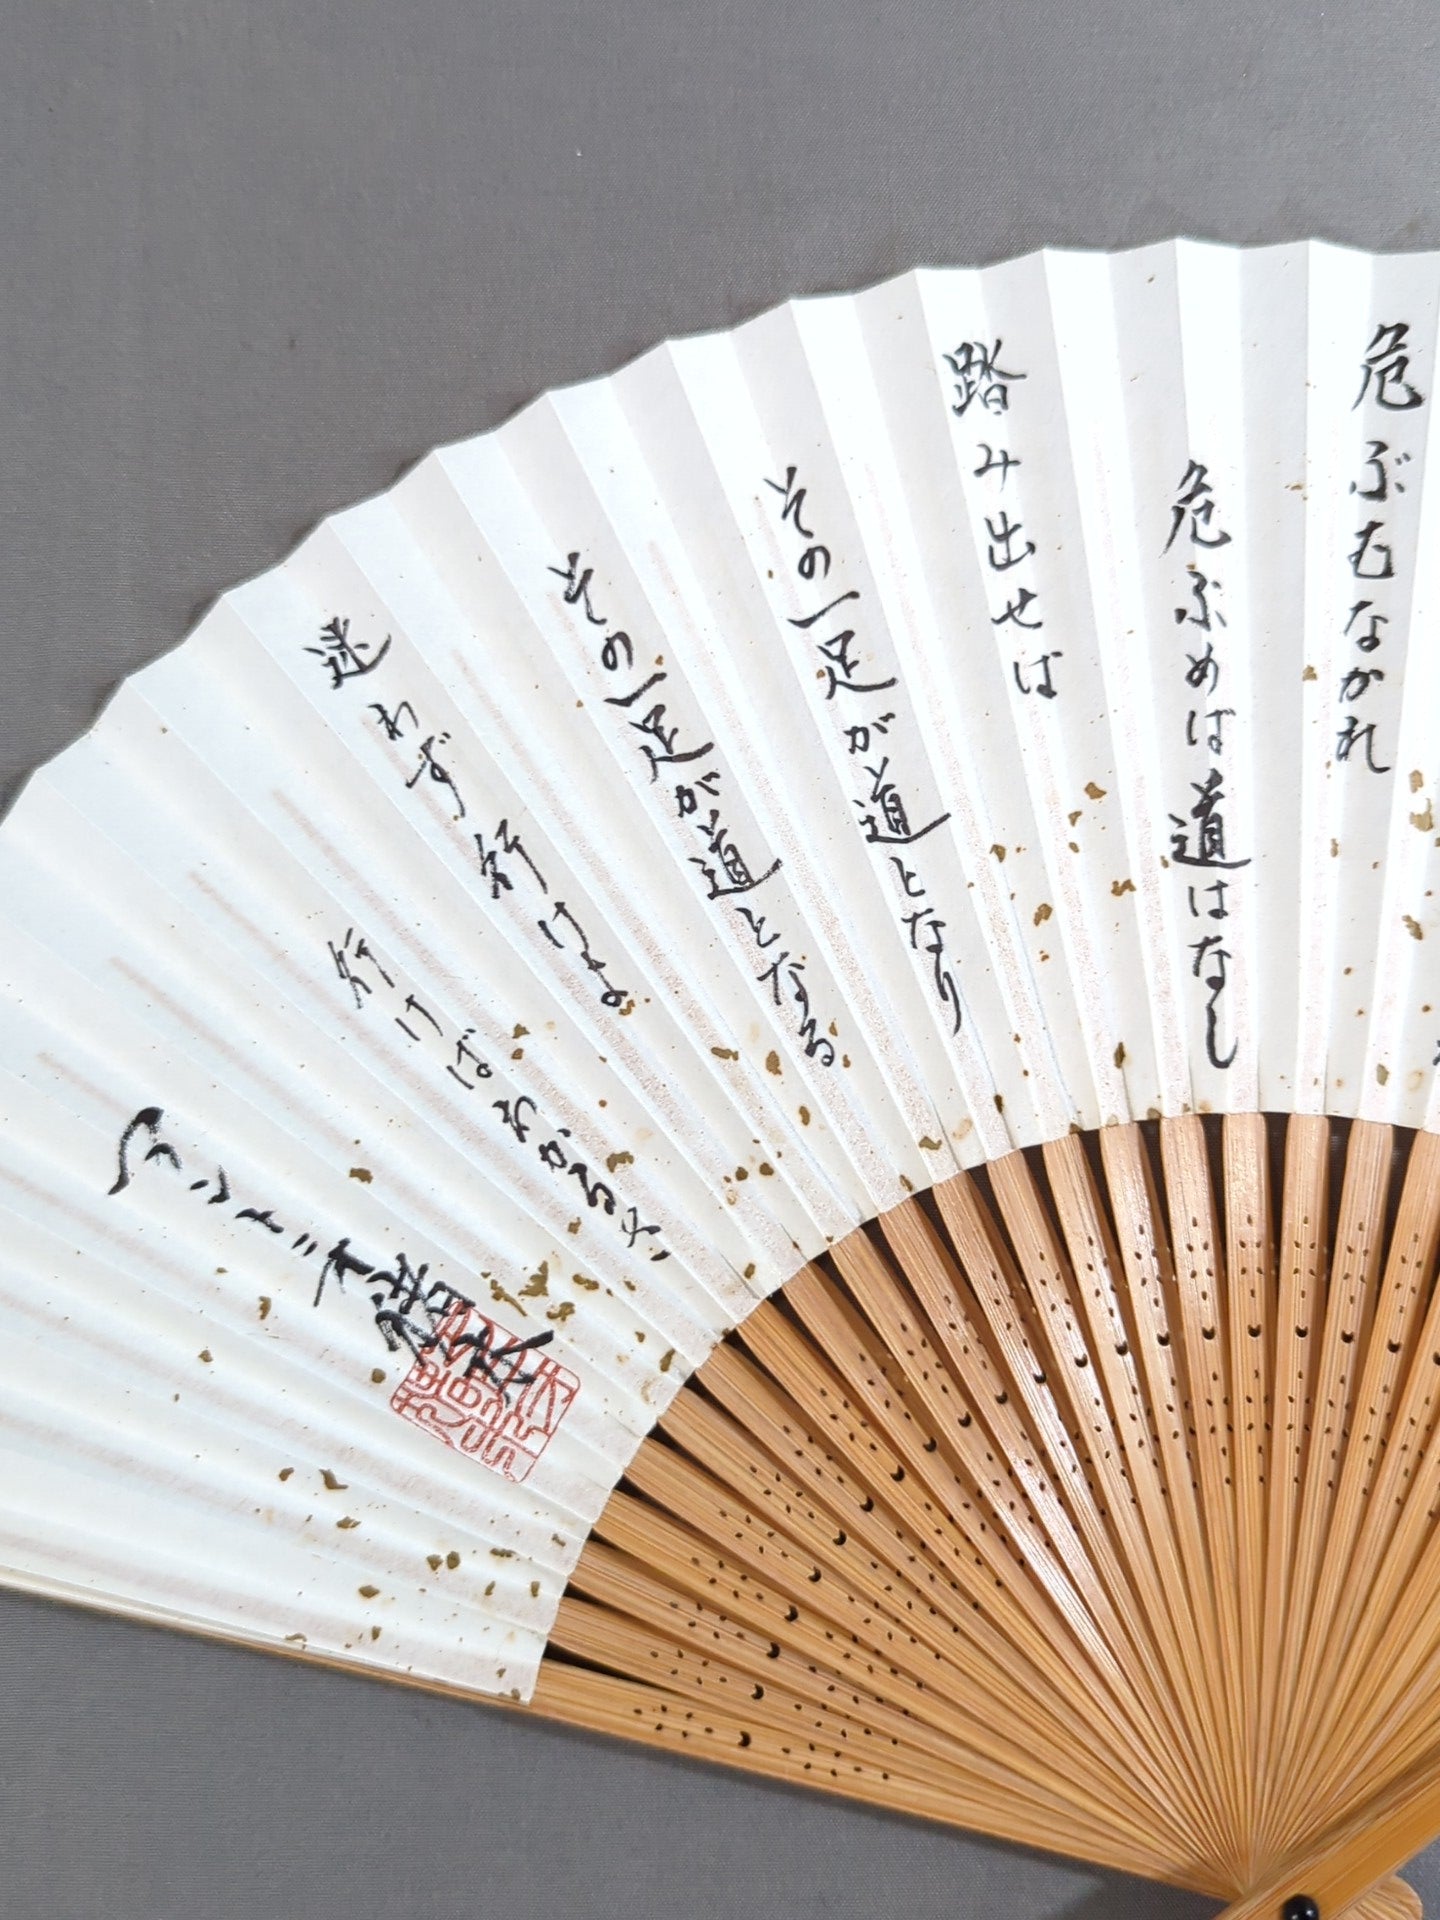 危ぶむなかれ
危ぶめば道はなし
踏み出せば
その一足が道となり
その一足が道となる
迷わず行けよ
行けばわかるさ
アントニオ猪木